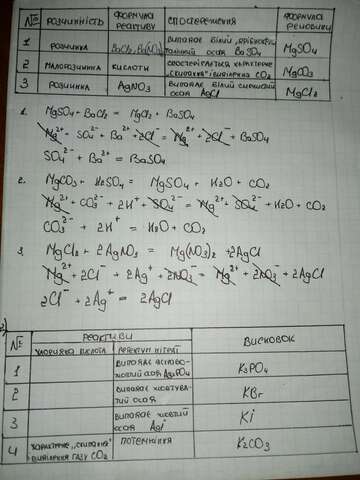 № РОЗЧИННІСТЬ ФОРМУЛА РЕАКТИВУ СПОСТЕРЕЖЕННЯ ФОРМУЛА РЕЧОВИНИ
1 РОЗЧИННА BaCl2, Ba(NO3)2 ВИПАДАЄ БІЛИЙ, ОСАД BaSO4 MgSO4
2 МАЛОРОЗЧИННА КИСЛОТИ СПОСТЕРІГАЄТЬСЯ ХАРАКТЕРНЕ „СКИПАННЯ" І ВИДІЛЕННЯ CO2 MgCO3
3 РОЗЧИННА AgNO3 ВИПАДАЄ БІЛИЙ ОСАД AgCl MgCl2
1.
MgSO4 + BaCl2 = MgCl2 + BaSO4
Mg2+ + SO4 2- + Ba2+ + 2Cl- = Mg2+ + 2Cl- + BaSO4
SO4 2- + Ba2+ = BaSO4
2.
MgCO3 + H2SO4 = MgSO4 + H2O + CO2
Mg2+ + CO3 2- + 2H+ + SO4 2- = Mg2+ + SO4 2- + H2O + CO2
CO3 2- + 2H+ = H2O + CO2
3.
MgCl2 + 2AgNO3 = Mg(NO3)2 + 2AgCl
Mg2+ + 2Cl- + 2Ag+ + 2NO3- = Mg2+ + 2NO3- + 2AgCl
2Cl- + 2Ag+ = 2AgCl
№ РЕАКТИВИ ВИСНОВОК
КИСЛОТА
1 ВИПАДАЄ ОСАД Ag3PO4 K3PO4
2 ВИПАДАЄ ЖОВТУВАТИЙ ОСАД KBr
3 ВИПАДАЄ ЖОВТИЙ ОСАД AgI KI
4 ХАРАКТЕРНЕ „СКИПАННЯ" ВИДІЛЕННЯ ГАЗУ CO2 ПОТЕМНІННЯ K2CO3